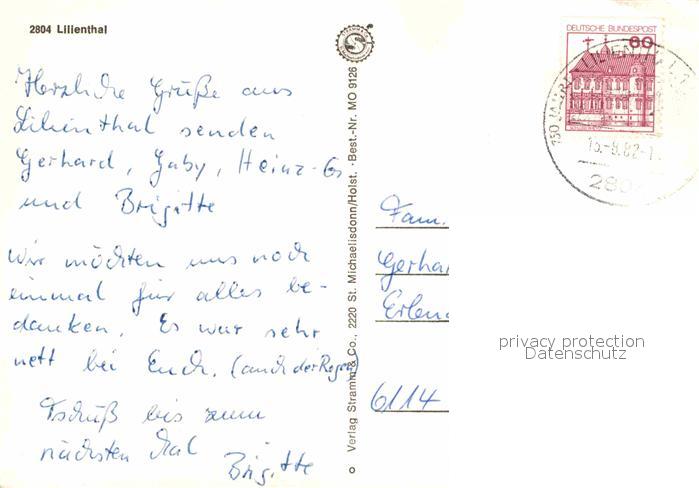 2804 Lilienthal
Herzliche Grüße aus
Lilienthal senden
Gerhard, Gaby, Heinz-
und Brigitte
Wir möchten uns noch
einmal für alles be-
danken. Es war sehr
nett bei Euch. (auch der Regen)
Tschüß bis zum
nächsten Mal
Brigitte
Verlag Stramm & Co., 2220 St. Michaelisdonn/Holst. · Best.-Nr. MO 9126
DEUTSCHE BUNDESPOST
60
750 JAHRE LILIENTHAL
15.-9.82-1
280
Fam.
Gerhar
Erlen
6114
privacy protection
Datenschutz